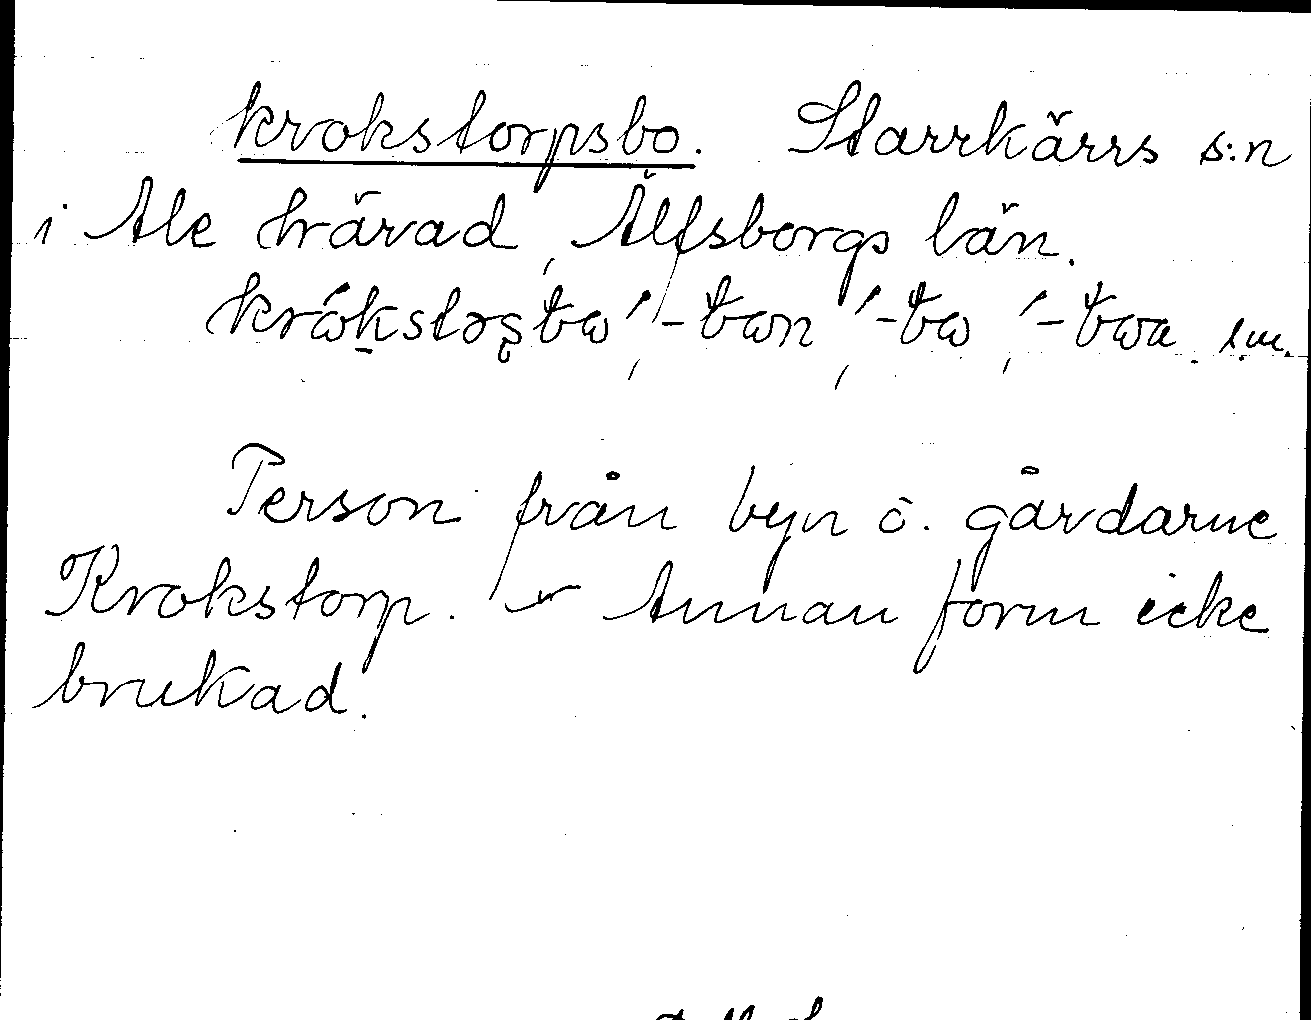 krokstorpsbo. Starrkärrs s:n
i Ale härad, Älfsborgs län.
-bon, -bo, -boa s.m.
Person från byn o. gårdarne
Krokstorp. — Annan form icke
brukad.